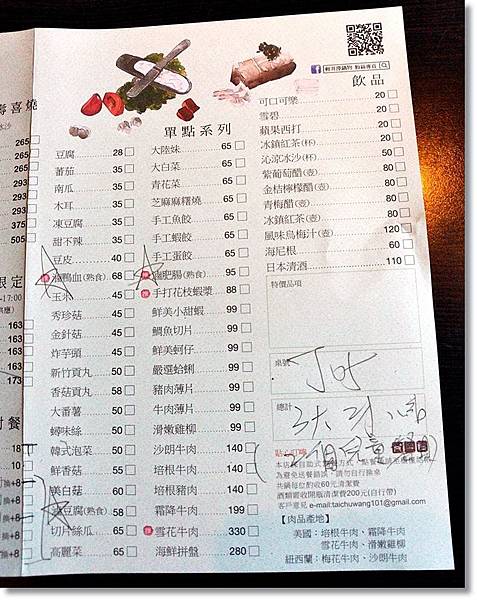 壽喜燒
265
265
265
293
293
293
375
505
限定
-17:00
163
163
163
173
單點系列
豆腐 28
蕃茄 35
南瓜 35
木耳 35
凍豆腐 35
甜不辣 35
豆皮 40
鴨血(熟食) 68
玉米 45
秀珍菇 45
金針菇 45
炸芋頭 45
新竹貢丸 50
香菇貢丸 58
大番薯 50
蟳味絲 50
韓式泡菜 50
鮮香菇 55
美白菇 60
臭豆腐(熟食) 58
切片絲瓜 65
高麗菜 65
大陸妹 65
大白菜 65
青花菜 65
芝麻麻糬燒 65
手工魚餃 65
手工蝦餃 65
手工蛋餃 65
肥腸(熟食) 95
手打花枝蝦漿 88
鮮美小甜蝦 99
鯛魚切片 99
鮮美蚵仔 99
嚴選蛤蜊 99
豬肉薄片 99
牛肉薄片 99
滑嫩雞柳 99
沙朗牛肉 140
培根牛肉 140
培根豬肉 140
霜降牛肉 199
雪花牛肉 330
海鮮拼盤 280
飲品
可口可樂 20
雪碧 20
蘋果西打 20
冰鎮紅茶(杯) 20
沁涼冰沙(杯) 50
紫葡萄醋(壺) 80
金桔檸檬醋(壺) 80
青梅醋(壺) 80
冰鎮紅茶(壺) 80
風味烏梅汁(壺) 120
海尼根 60
日本清酒 110
特價品項
桌號
總計
為避免送餐錯誤，請勿自行換桌
共鍋每位酌收60元清潔費
酒類需收開瓶清潔費200元(自行帶)
客戶意見 e-mail:taichuwang101@gmail.com
【肉品產地】
美國：培根牛肉、霜降牛肉
雪花牛肉、滑嫩雞柳
紐西蘭：梅花牛肉、沙朗牛肉